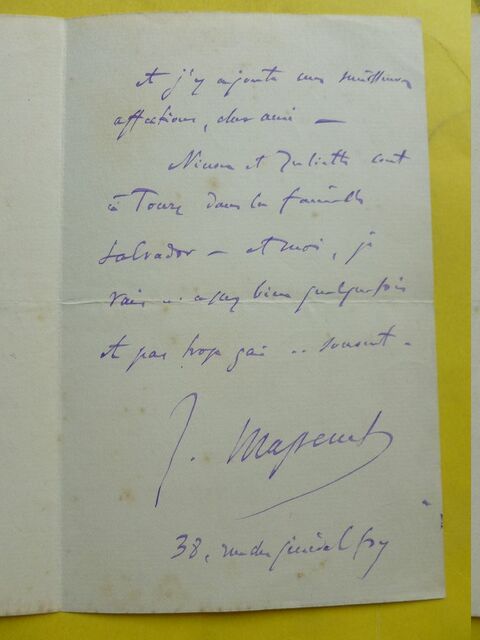 et j'y ajoute mes meilleures
affections, cher ami —
Ninon et Juliette sont
à Tours dans la famille
Salvador — et moi, je
vais .. assez bien quelquefois
et pas trop gai .. souvent.
J. Massenet
38, rue du général Foy